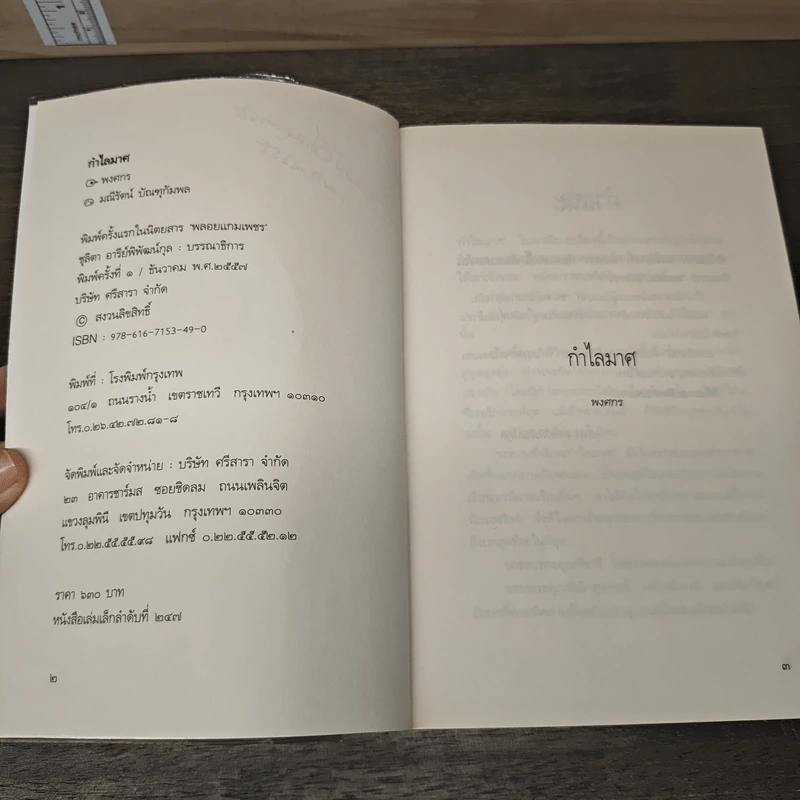 กำไลมาศ
พงศกร
มณีรัตน์ บัณฑุกัมพล
พิมพ์ครั้งแรกในนิตยสาร "พลอยแกมเพชร"
ชุลิตา อารีย์พิพัฒน์กุล : บรรณาธิการ
พิมพ์ครั้งที่ ๑ / ธันวาคม พ.ศ.๒๕๕๗
บริษัท ศรีสารา จำกัด
© สงวนลิขสิทธิ์
ISBN : 978-616-7153-49-0
พิมพ์ที่ : โรงพิมพ์กรุงเทพ
๑๐๔/๑ ถนนรางน้ำ เขตราชเทวี กรุงเทพฯ ๑๐๓๑๐
โทร.๐.๒๖.๔๒.๗๒.๘๑-๘
จัดพิมพ์และจัดจำหน่าย : บริษัท ศรีสารา จำกัด
๒๓ อาคารชาร์มส ซอยชิดลม ถนนเพลินจิต
แขวงลุมพินี เขตปทุมวัน กรุงเทพฯ ๑๐๓๓๐
โทร.๐.๒๒.๕๕.๕๕.๙๘ แฟกซ์ ๐.๒๒.๕๕.๕๒.๑๒
ราคา ๖๓๐ บาท
หนังสือเล่มเล็กลำดับที่ ๒๔๗
๒
กำไลมาศ
พงศกร
๓